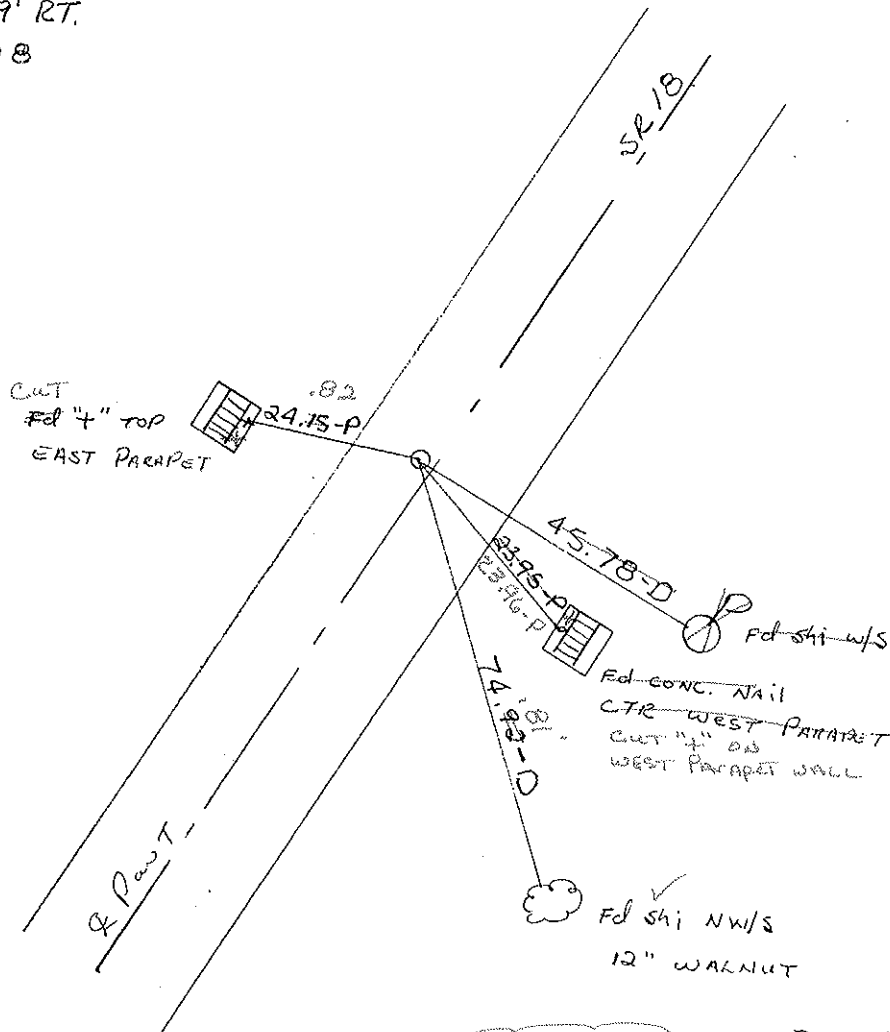 9' RT.
8
SR 18
CUT
Fd "+" TOP
EAST PARAPET
.82
24.15-P
45.78-D
23.95-P
23.96-P
Fd shi w/s
Fd CONC. NAIL
CTR WEST PARAPET
CUT "+" ON
WEST PARAPET WALL
.81
74.92-D
℄ PavT
Fd shi NW/S
12" WALNUT